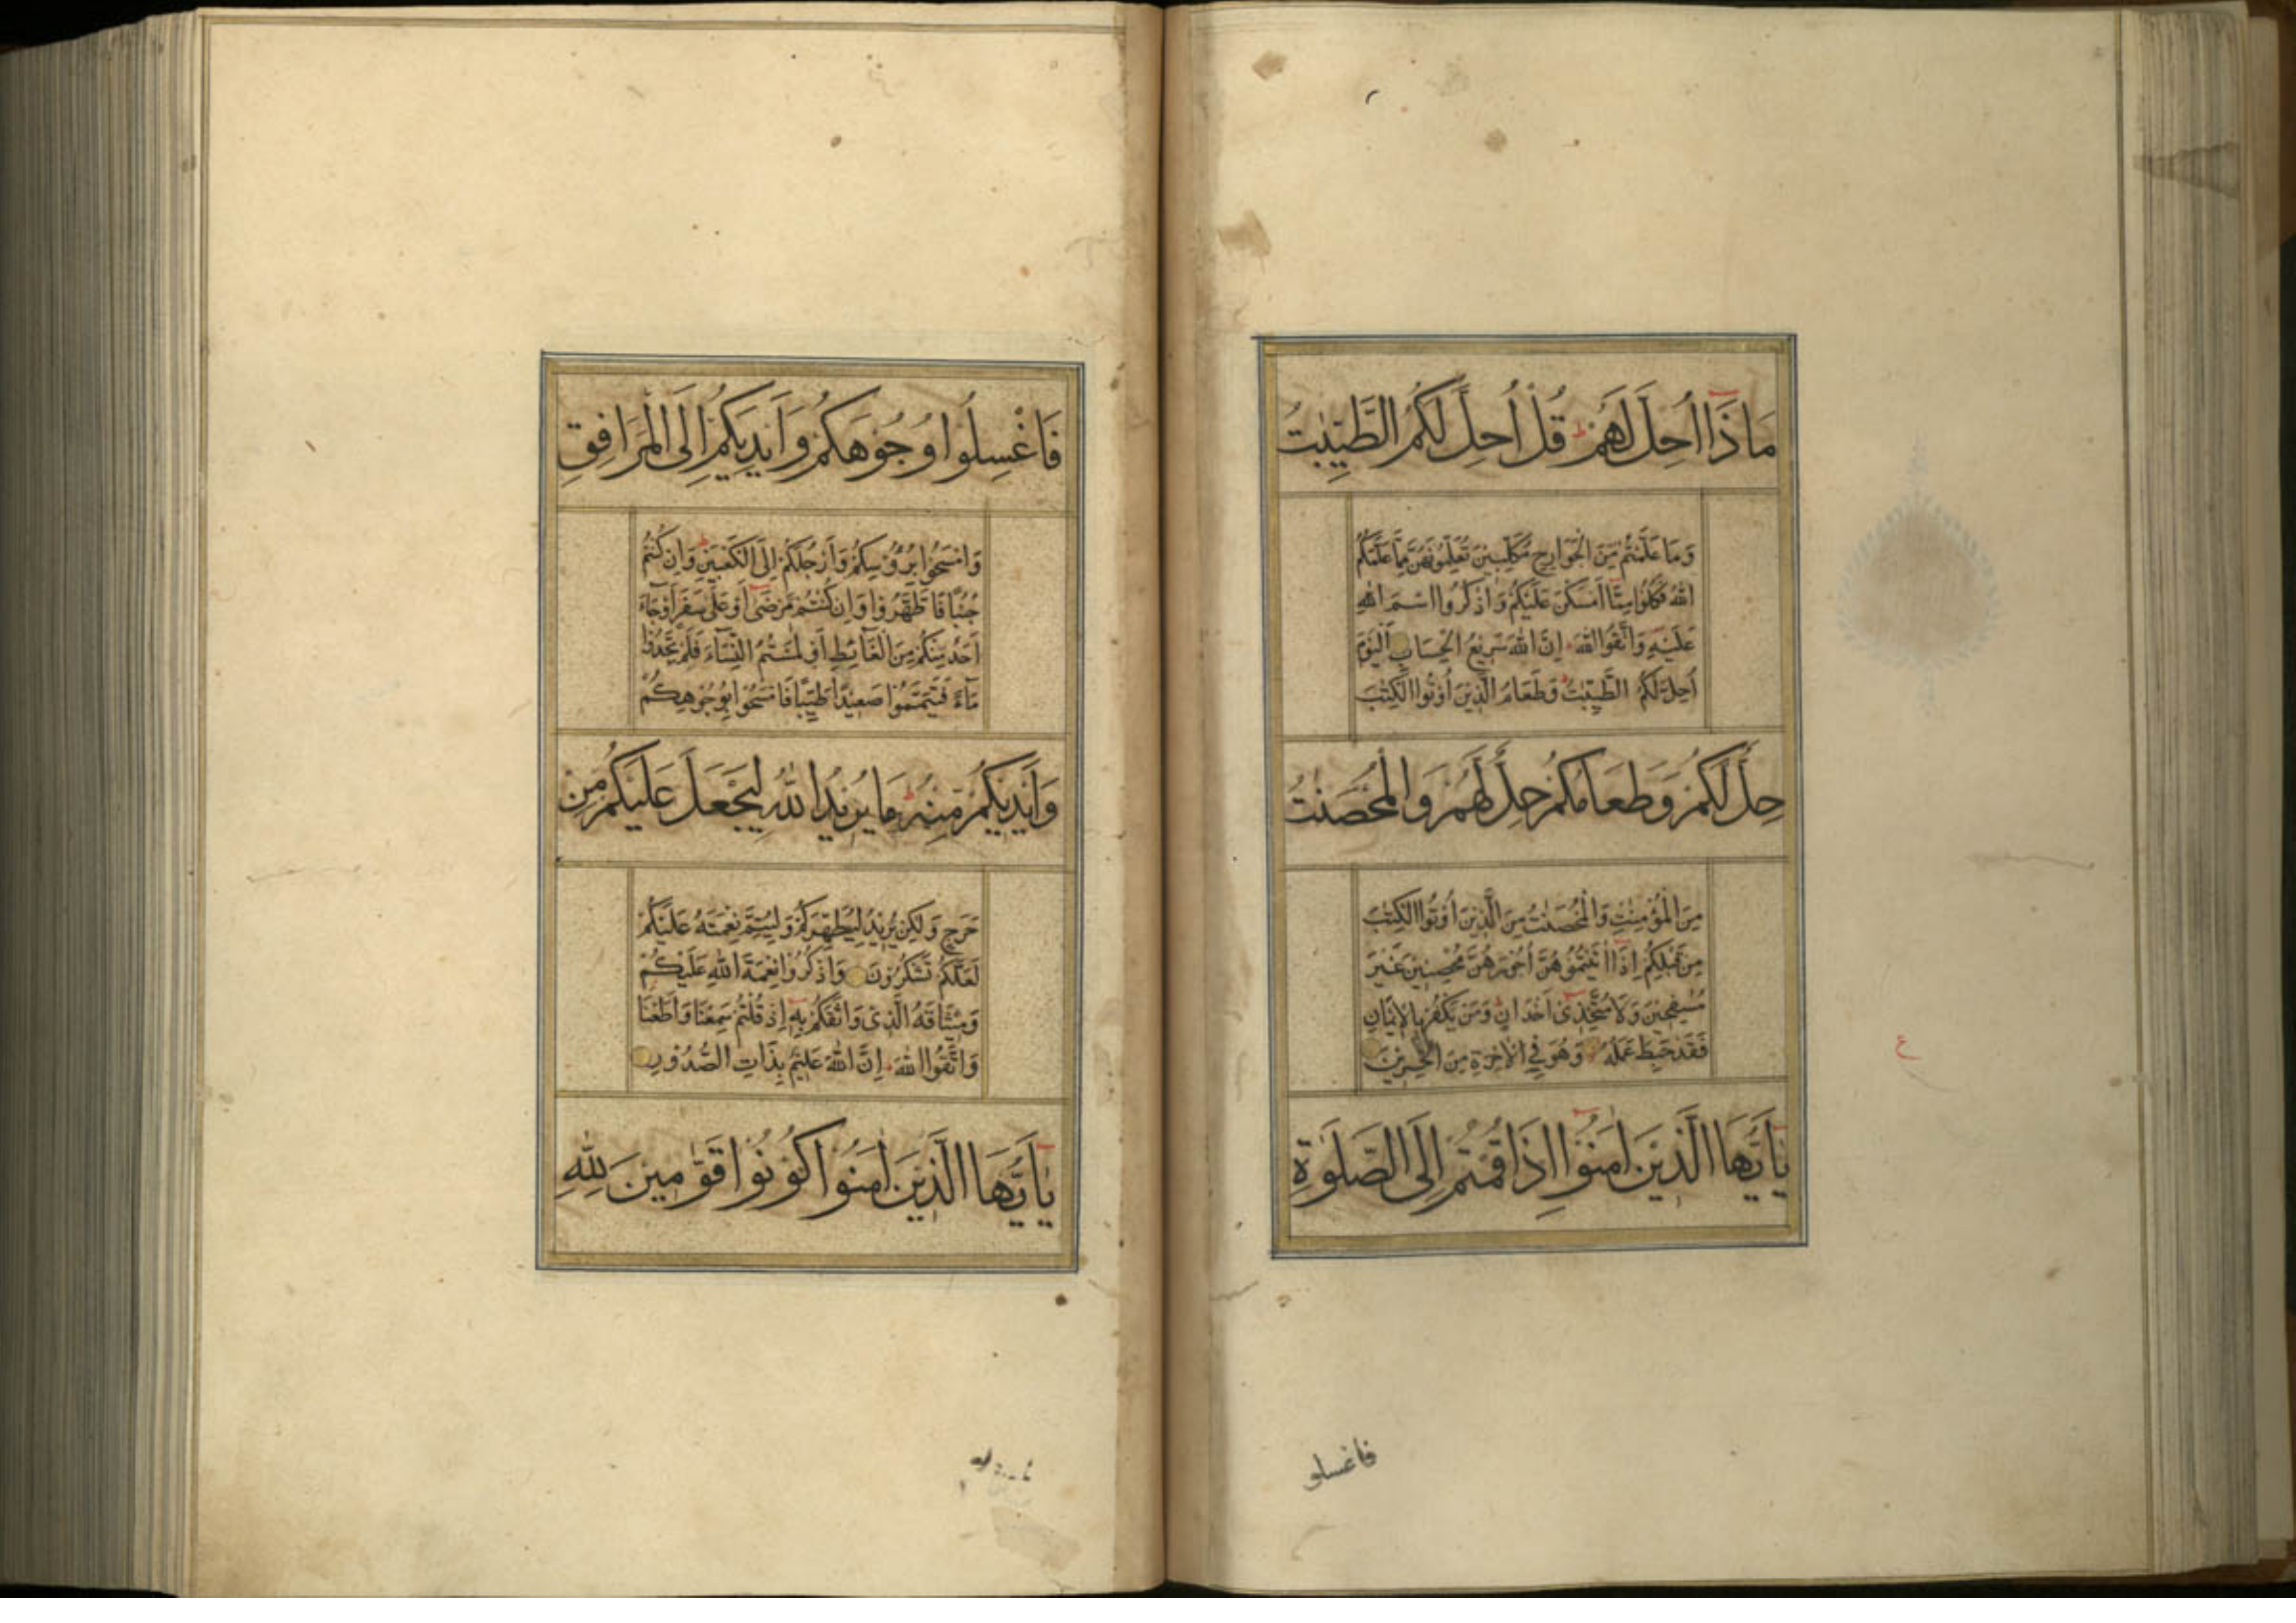 مَاذَا اُحِلَّ لَهُمْ ط قُلْ اُحِلَّ لَكُمُ الطَّيِّبٰتُ
وَمَا عَلَّمْتُمْ مِنَ الْجَوَارِحِ مُكَلِّبِيْنَ تُعَلِّمُوْنَهُنَّ مِمَّا عَلَّمَكُمُ
اللهُ فَكُلُوْا مِمَّا اَمْسَكْنَ عَلَيْكُمْ وَاذْكُرُوا اسْمَ اللهِ
عَلَيْهِ وَاتَّقُوا اللهَ اِنَّ اللهَ سَرِيْعُ الْحِسَابِ اَلْيَوْمَ
اُحِلَّ لَكُمُ الطَّيِّبٰتُ ط وَطَعَامُ الَّذِيْنَ اُوْتُوا الْكِتٰبَ
حِلٌّ لَكُمْ وَطَعَامُكُمْ حِلٌّ لَهُمْ وَالْمُحْصَنٰتُ
مِنَ الْمُؤْمِنٰتِ وَالْمُحْصَنٰتُ مِنَ الَّذِيْنَ اُوْتُوا الْكِتٰبَ
مِنْ قَبْلِكُمْ اِذَا اٰتَيْتُمُوْهُنَّ اُجُوْرَهُنَّ مُحْصِنِيْنَ غَيْرَ
مُسٰفِحِيْنَ وَلَا مُتَّخِذِىْ اَخْدَانٍ وَمَنْ يَكْفُرْ بِالْاِيْمَانِ
فَقَدْ حَبِطَ عَمَلُهُ وَهُوَ فِى الْاٰخِرَةِ مِنَ الْخٰسِرِيْنَ
ع
يٰاَيُّهَا الَّذِيْنَ اٰمَنُوْا اِذَا قُمْتُمْ اِلَى الصَّلٰوةِ
فاغسلو
فَاغْسِلُوْا وُجُوْهَكُمْ وَاَيْدِيَكُمْ اِلَى الْمَرَافِقِ
وَامْسَحُوْا بِرُؤُسِكُمْ وَاَرْجُلَكُمْ اِلَى الْكَعْبَيْنِ ط وَاِنْ كُنْتُمْ
جُنُبًا فَاطَّهَّرُوْا وَاِنْ كُنْتُمْ مَرْضٰى اَوْ عَلٰى سَفَرٍ اَوْ جَاءَ
اَحَدٌ مِنْكُمْ مِنَ الْغَائِطِ اَوْ لٰمَسْتُمُ النِّسَاءَ فَلَمْ تَجِدُوْا
مَاءً فَتَيَمَّمُوْا صَعِيْدًا طَيِّبًا فَامْسَحُوْا بِوُجُوْهِكُمْ
وَاَيْدِيْكُمْ مِنْهُ ط مَا يُرِيْدُ اللهُ لِيَجْعَلَ عَلَيْكُمْ مِنْ
حَرَجٍ وَلٰكِنْ يُرِيْدُ لِيُطَهِّرَكُمْ وَلِيُتِمَّ نِعْمَتَهُ عَلَيْكُمْ
لَعَلَّكُمْ تَشْكُرُوْنَ وَاذْكُرُوْا نِعْمَةَ اللهِ عَلَيْكُمْ
وَمِيْثَاقَهُ الَّذِىْ وَاثَقَكُمْ بِهِ اِذْ قُلْتُمْ سَمِعْنَا وَاَطَعْنَا
وَاتَّقُوا اللهَ اِنَّ اللهَ عَلِيْمٌ بِذَاتِ الصُّدُوْرِ
يٰاَيُّهَا الَّذِيْنَ اٰمَنُوْا كُوْنُوْا قَوّٰمِيْنَ لِلّٰهِ